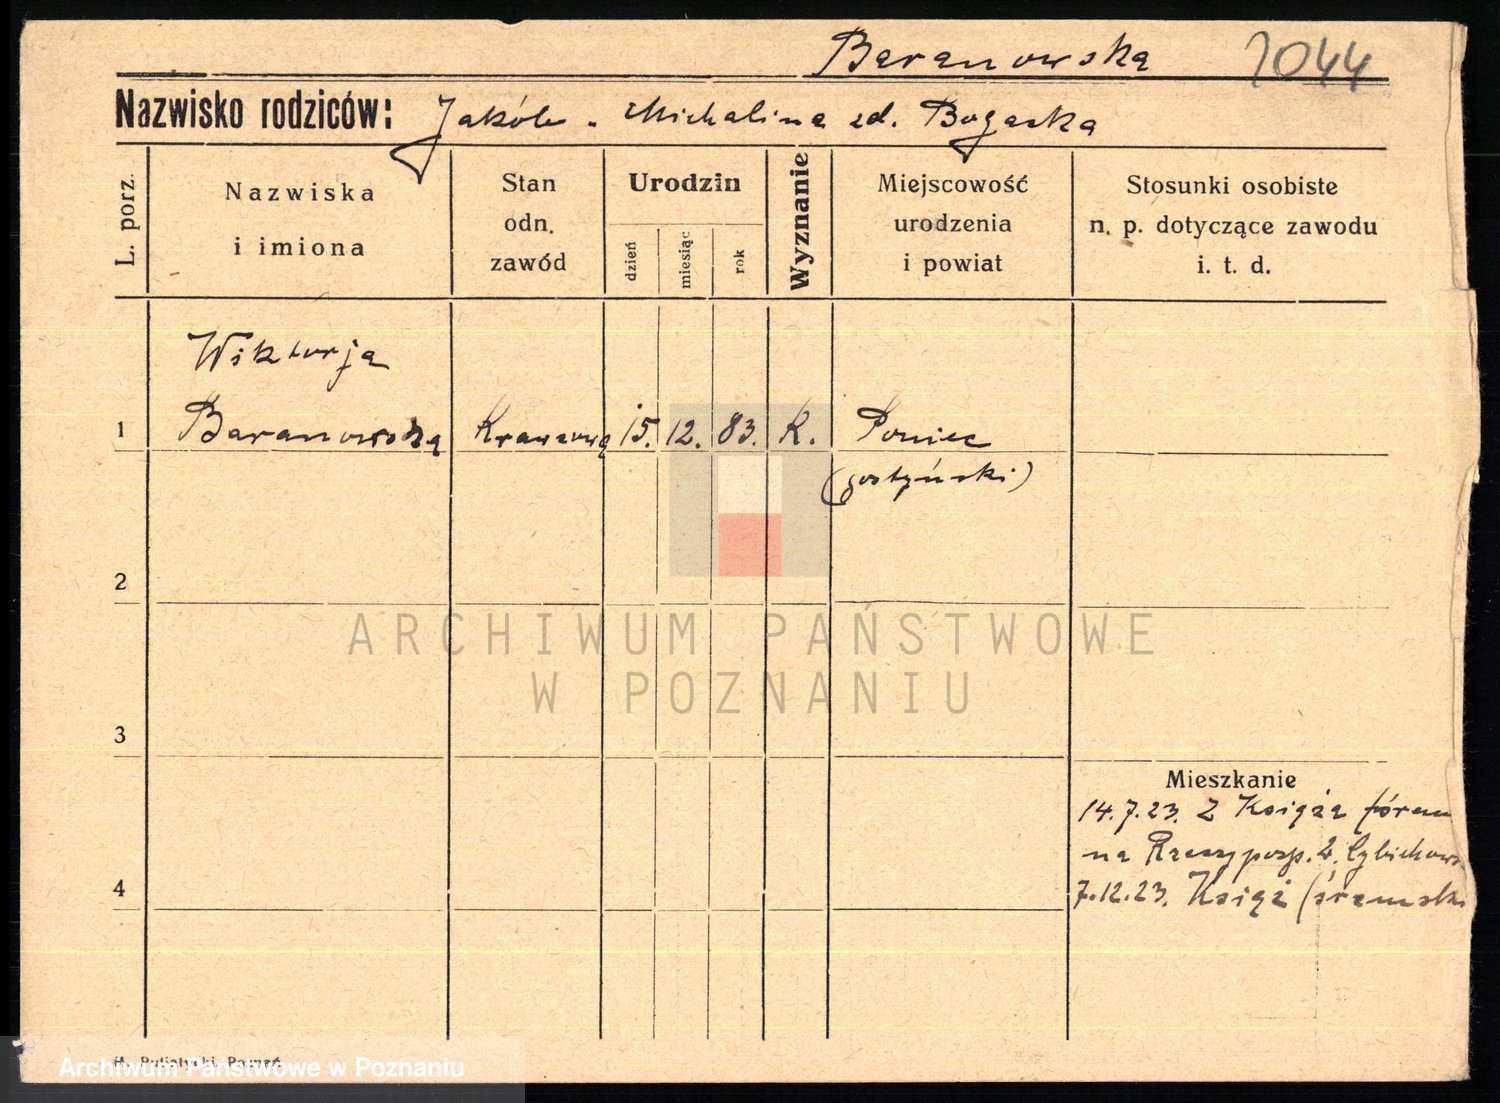 Baranowska 2044
Nazwisko rodziców: Jakób - Michalina zd. Bogacka
L. porz.
Nazwiska
i imiona
Stan
odn.
zawód
Urodzin
dzień
miesiąc
rok
Wyznanie
Miejscowość
urodzenia
i powiat
Stosunki osobiste
n. p. dotyczące zawodu
i. t. d.
Wiktorja
1 Baranowska Krawcowa 15. 12. 83. K. Poniec
(gostyński)
2
ARCHIWUM PAŃSTWOWE
W POZNANIU
3
Mieszkanie
14.7.23. Z Książa
na Rzeczyposp. 2.
4
7.12.23. Książ (śremski
Poznań
Archiwum Państwowe w Poznaniu